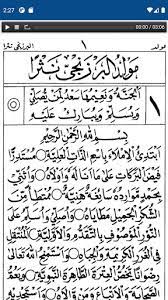 2:27
00:00
مولد ١ البرزنجي نثرا
مَوْلِدُ الْبَرْزَنْجِيِّ نَثْرًا
١ اَلْجَنَّةُ وَنَعِيْمُهَا سَعْدٌ لِمَنْ يُصَلِّيْ
وَيُسَلِّمُ وَيُبَارِكُ عَلَيْهِ
بِسْمِ اللهِ الرَّحْمٰنِ الرَّحِيْمِ
اَبْتَدِئُ الْاِمْلَاءَ بِاسْمِ الذَّاتِ الْعَلِيَّةِ ۞ مُسْتَدِرًّا
فَيْضَ الْبَرَكَاتِ عَلٰى مَا اَنَالَهُ وَاَوْلَاهُ ۞ وَاُثَنِّيْ
بِحَمْدٍ مَوَارِدُهُ سَائِغَةٌ هَنِيَّةٌ ۞ مُمْتَطِيًا مِنَ
الشُّكْرِ الْجَمِيْلِ مَطَايَاهُ ۞ وَاُصَلِّيْ وَاُسَلِّمُ عَلَى
النُّوْرِ الْمَوْصُوْفِ بِالتَّقَدُّمِ وَالْاَوَّلِيَّةِ ۞ الْمُنْتَقِلِ فِي
الْغُرَرِ الْكَرِيْمَةِ وَالْجِبَاهِ ۞ وَاَسْتَمْنِحُ اللهَ
تَعَالٰى رِضْوَانًا يَخُصُّ الْعِتْرَةَ الطَّاهِرَةَ النَّبَوِيَّةَ ۞